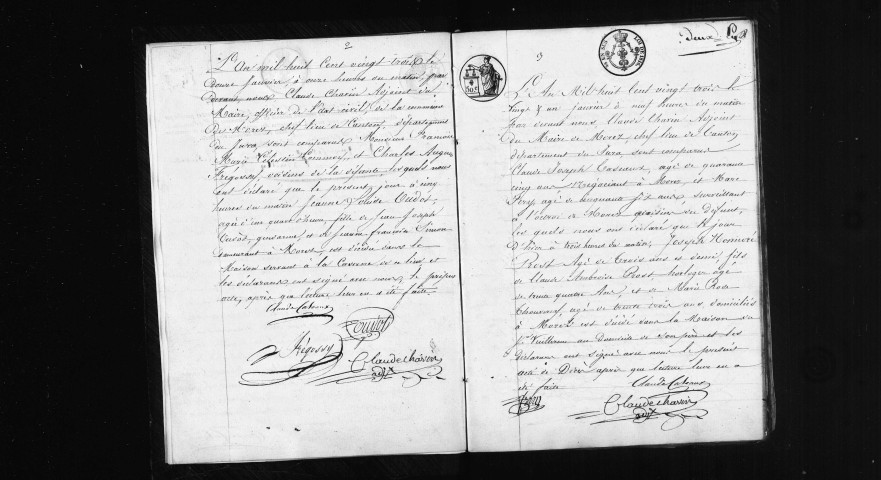 2
L'An mil huit Cent vingt trois le
Douze janvier, à onze heures du matin, par
devant nous Claude Chavin Adjoint du
Maire, officier de l'état civil, de la commune
de Morez, chef lieu de Canton, département
du Jura, sont comparus Monsieur François
Marie Célestin et Charles Augte
Frégossy, voisins de la défunte, lesquels nous
ont déclaré que le présent jour à cinq
heures du matin Jeanne Louise Cudot,
agée d'un quart d'heure, fille de Jean Joseph
Cudot, gendarme, et de Jeanne françoise Simon
demeurant à Morez, est décédée dans la
Maison servant à la Caserne de ce lieu, et
les déclarans ont signé avec nous le présent
acte, après que lecture leur en a été faite.
Claude
Frégossy
Claude Chavin
adjt
3
deux
L'An Mil huit Cent vingt trois le
vingt & un janvier à neuf heures du matin
par devant nous Claude Chavin Adjoint
du Maire de Morez, chef lieu de Canton,
département du Jura, sont comparus
Claude Joseph Cazeaux, agé de quarante
cinq ans Négociant à Morez et Marc
agé de cinquante six ans surveillant
à l'octroi de Morez voisins du défunt,
les quels nous ont déclaré que le jour
D'hier à trois heures du matin, Joseph Honoré
Prost Agé de trois ans et demi, fils
de Claude Ambroise Prost horloger agé
de trente quatre Ans, et de Marie Rose
agée de trente trois ans, domiciliés
à Morez est décédé dans la Maison du
Sr Vuillerme au Domicile de son père et les
déclarans ont signé avec nous le présent
acte de Décès après que lecture leur en a
été faite
Claude
Claude Chavin
adjt